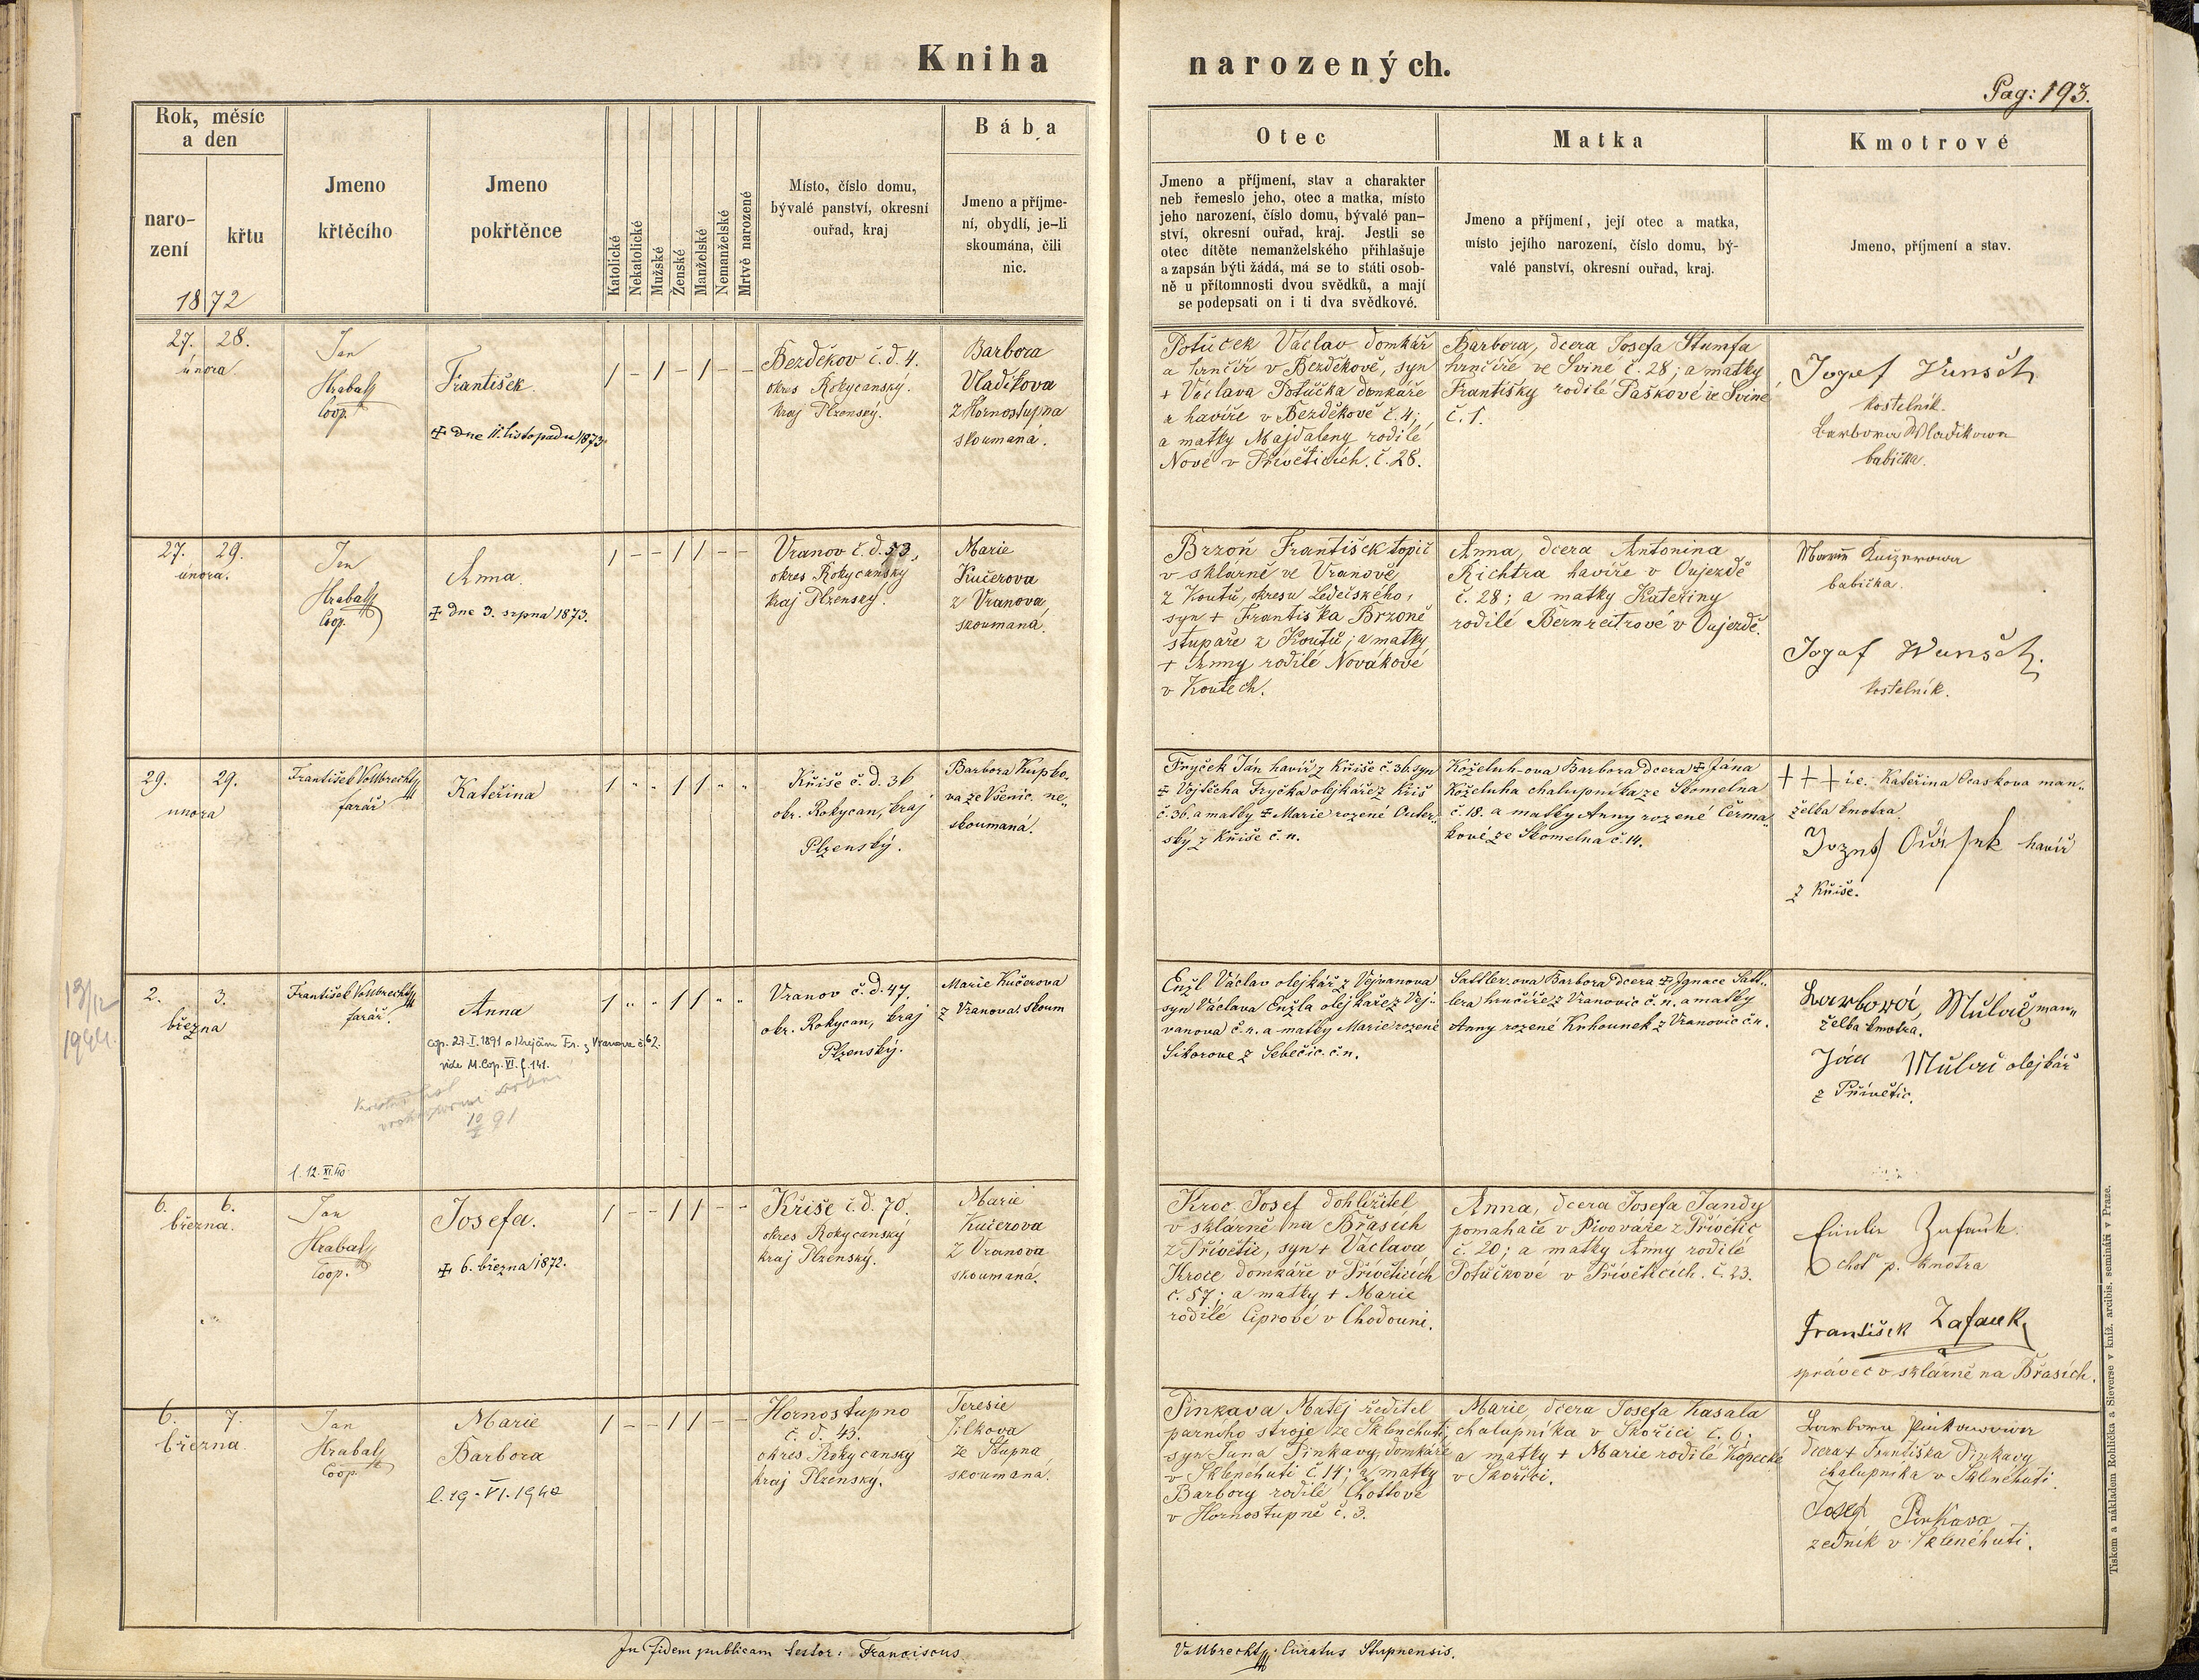 Kniha
narozených.
Pag: 193.
Rok, měsíc
a den
naro-
zení
křtu
1872
Jmeno
křtěcího
Jmeno
pokřtěnce
Katolické
Nekatolické
Mužské
Ženské
Manželské
Nemanželské
Mrtvě narozené
Místo, číslo domu,
bývalé panství, okresní
ouřad, kraj
Bába
Jmeno a příjme-
ní, obydlí, je-li
skoumána, čili
nic.
Otec
Jmeno a příjmení, stav a charakter
neb řemeslo jeho, otec a matka, místo
jeho narození, číslo domu, bývalé pan-
ství, okresní ouřad, kraj. Jestli se
otec dítěte nemanželského přihlašuje
a zapsán býti žádá, má se to státi osob-
ně u přítomnosti dvou svědků, a mají
se podepsati on i ti dva svědkové.
Matka
Jmeno a příjmení, její otec a matka,
místo jejího narození, číslo domu, bý-
valé panství, okresní ouřad, kraj.
Kmotrové
Jmeno, příjmení a stav.
27. 28.
února
Jan
Hrabal
Coop.
František
+ dne 11. listopadu 1873.
1 - 1 - 1 - -
Bezděkov č. d. 4.
okres Rokycanský.
kraj Plzenský.
Barbora
Vladíkova
z Hornostupna
skoumaná.
Potůček Václav domkář
a hrnčíř v Bezděkově, syn
+ Václava Potůčka domkáře
a havíře v Bezděkově č. 4;
a matky Majdaleny rodilé
Nové v Přívěticích. č. 28.
Barbora, dcera Josefa Štumfa
hrnčíře ve Svině č. 28; a matky
Františky rodilé Paškové ve Svině
č. 1.
Josef Wunsch
kostelník.
Barbora Wladikowa
babička.
27. 29.
února.
Jan
Hrabal
Coop.
Anna.
+ dne 3. srpna 1873.
1 - - 1 1 - -
Vranov č. d. 53,
okres Rokycanský
kraj Plzenský.
Marie
Kučerova
z Vranova,
skoumaná.
Brzoň František topič
v sklárně ve Vranově
z Koutů, okresu Ledečského,
syn + Františka Brzoně
stupaře z Koutů; a matky
+ Anny rodilé Novákové
v Koutech.
Anna, dcera Antonina
Richtra havíře v Oujezdě
č. 28; a matky Kateřiny
rodilé Bernreitrové v Oujezdě.
babička.
Josef Wunsch.
kostelník.
29. 29.
unora
František Vollbrecht
farář
Kateřina
1 " " 1 1 " "
Kříše č. d. 36
okr. Rokycan, kraj
Plzenský.
Barbora Kupko-
va ze Všenic. ne-
skoumaná.
Fryček Ján havíř z Kříše č. 36. syn
+ Vojtěcha Fryčka olejkáře z Kříš
č. 36. a matky + Marie rozené Outer-
ský z Kříše č. n.
Koželuh-ova Barbora dcera + Jána
Koželuha chalupníka ze Skomelna
č. 18. a matky Anny rozené Čerma-
kové ze Skomelna č. 14.
+ + + i.e. Kateřina Ocaskova man-
želka kmotra
havíř
z Kříše.
13/12
1944.
2. 3.
března
František Vollbrecht
farář.
Anna
cop. 27. I. 1891 s Krejčím Fr. z Vranova č. 62.
vide M. Cop. VI. f. 141.
l. 12. XI. 40
1 " " 1 1 " "
Vranov č. d. 47.
okr. Rokycan, kraj
Plzenský.
Marie Kučerova
z Vranova. skoum
Enžl Václav olejkář z Vejvanova
syn Václava Enžla olejkáře z Vej-
vanova č. n. a matky Marie rozené
Sikorove z Sebečic. č. n.
Sattler-ova Barbora dcera + Ignace Satt-
lera hrnčíře z Vranovic č. n. a matky
Anny rozené Knhounek z Vranovic č. n.
Barbora, Mulač, man-
želka kmotra.
Ján Mulač olejkář
z Přívětic.
6. 6.
března.
Jan
Hrabal
Coop.
Josefa.
+ 6. března 1872.
1 - - 1 1 - -
Kříše č. d. 70.
okres Rokycanský
kraj Plzenský.
Marie
Kučerova
z Vranova
skoumaná.
Kroc Josef dohlížitel
v sklárně na Břasích
z Přívětic, syn + Václava
Kroce domkáře v Přívěticích
č. 57; a matky + Marie
rodilé Ciprové v Chodouni.
Anna, dcera Josefa Jandy
pomahače v Pivováře z Přívětic
č. 20; a matky Anny rodilé
Potůčkové v Přívěticích. č. 23.
choť p. kmotra
František Zafauk
správec v sklárně na Břasích.
6. 7.
března.
Jan
Hrabal
Coop.
Marie
Barbora
l. 19-VI. 1940
1 - - 1 1 - -
Hornostupno
č. d. 43.
okres Rokycansky
kraj Plzenský.
Teresie
Jílkova
ze Stupna,
skoumaná.
Pinkava Matěj ředitel
parního stroje ze Sklenéhuti,
syn Jana Pinkavy, domkáře
v Sklenéhuti č. 14; a matky
Barbory rodilé Chottové
v Hornostupně č. 3.
Marie dcera Josefa Kasala
chalupníka v Skořici č. 6;
a matky + Marie rodilé Kopecké
v Skořici.
Barbora Pinkawowa
dcera + Františka Pinkavy
chalupníka v Sklenéhuti.
Josef Pinkava
zedník v Sklenéhuti.
In fidem publicam testor: Franciscus
Vollbrecht, Curatus Stupnensis.
Tiskem a nákladem Rohlíčka a Sieverse v kníž. arcibis. semináři v Praze.